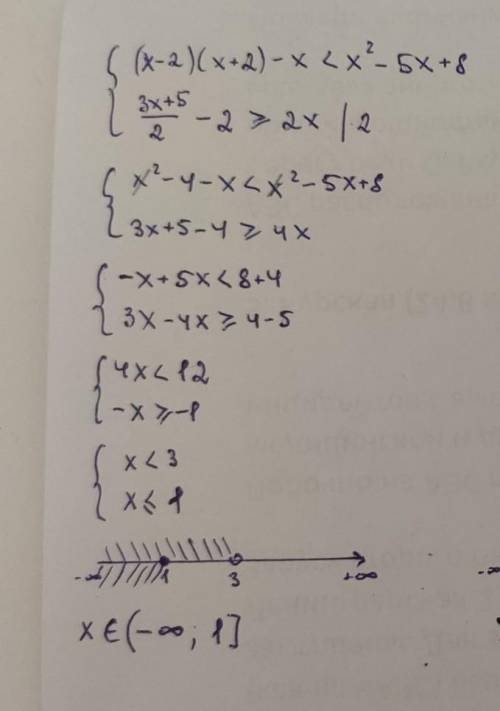 (x-2)(x+2) - x < x² - 5x + 8
(3x+5)/2 - 2 ⩾ 2x | 2
x² - 4 - x < x² - 5x + 8
3x + 5 - 4 ⩾ 4x
-x + 5x < 8 + 4
3x - 4x ⩾ 4 - 5
4x < 12
-x ⩾ -1
x < 3
x ⩽ 1
-∞ 1 3 +∞
x ∈ (-∞; 1]